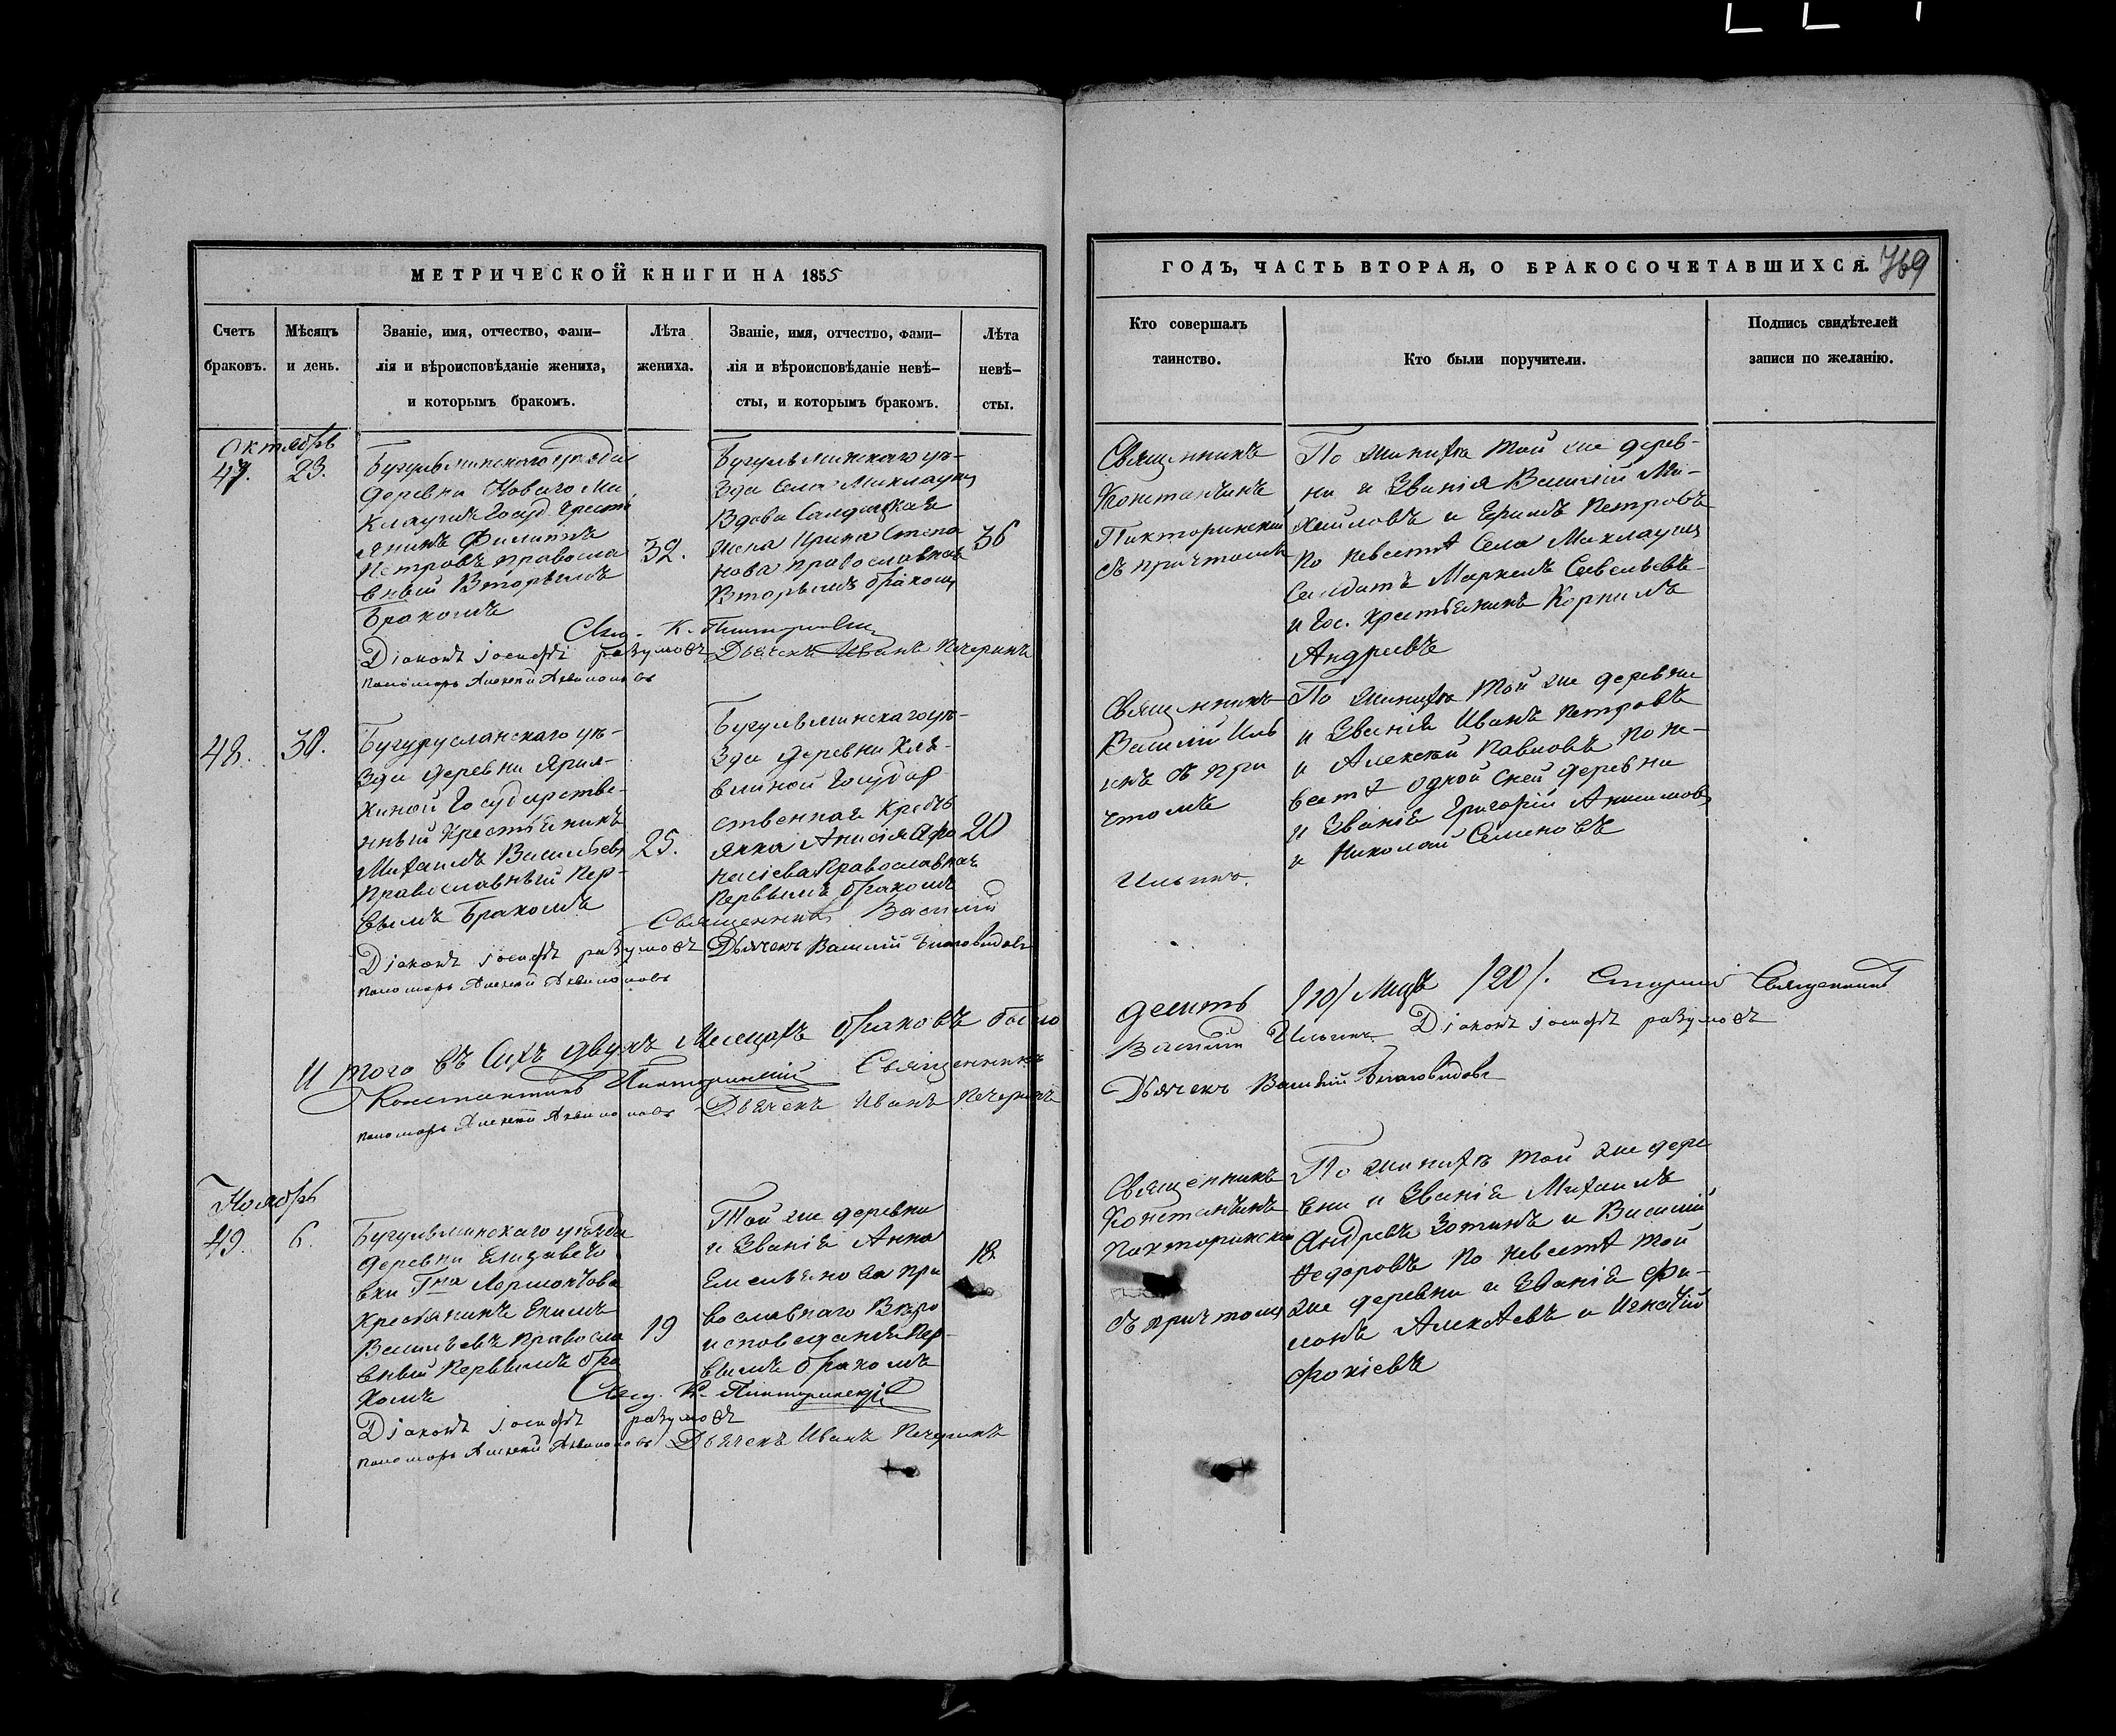 МЕТРИЧЕСКОЙ КНИГИ НА 1855
Счетъ
браковъ.
Мѣсяцъ
и день.
Званіе, имя, отчество, фами-
лія и вѣроисповѣданіе жениха,
и которымъ бракомъ.
Лѣта
жениха.
Званіе, имя, отчество, фами-
лія и вѣроисповѣданіе невѣ-
сты, и которымъ бракомъ.
Лѣта
невѣ-
сты.
Октябрь
47. 23.
Бугульминскаго уѣзда
деревни Новаго Ма
клауша Госуд. Крестья
янинъ Филиппъ
Петровъ правосла
вный Вторымъ
Бракомъ
32.
Бугульминскаго уѣ-
зда Села Маклауша
Вдова Салдацкая
жена Ирина Степа
нова православная
Вторымъ бракомъ
36
Свящ. К. Пикторинскій
Діаконъ Іосифъ разумовъ Дьячекъ Иванъ Печеринъ
пономарь Алексей Аквилоновъ
48. 30.
Бугурусланскаго уѣ-
зда деревни Ярил-
киной Государстве-
нный Крестьянинъ
Михаилъ Васильевъ
Православный Пер-
вымъ Бракомъ
25.
Бугульминскаго уѣ-
зда деревни Кля-
влиной Государ
ственная Кресть
янка Анисія Афо
насіева Православная
Первымъ бракомъ
20
Священникъ Василій
Діаконъ Іосифъ разумовъ Дьячекъ Василій Благовидовъ
пономарь Алексей Аквилоновъ
И того въ Сихъ двухъ Месецахъ браковъ было
Константинъ Пикторинскій Священникъ
пономарь Алексей Аквилоновъ Дьячекъ Иванъ Печеринъ
Ноябрь
49. 6.
Бугульминскаго уѣзда
деревни Елизавето
вки Гна Лермонтова
Крестянинъ Екимъ
Васильевъ Правосла
вный Первымъ бра
комъ
19
Той же деревни
и Званія Анна
Емельянова пра
вославнаго Веро
исповеданія Пер-
вымъ бракомъ
18
Свящ. К. Пикторинскій
Діаконъ Іосифъ разумовъ
пономарь Алексей Аквилоновъ Дьячекъ Иванъ Печеринъ
ГОДЪ, ЧАСТЬ ВТОРАЯ, О БРАКОСОЧЕТАВШИХСЯ. 769
Кто совершалъ
таинство.
Кто были поручители.
Подпись свидѣтелей
записи по желанію.
Священникъ
Константинъ
Пикторинский
съ причтомъ
По жениха той же дерев-
ни и Званія Василій Ми-
хайловъ и Ефимъ Петровъ
по невестѣ Села Маклауша
Салдатъ Маркелъ Савельевъ
и Гос. Крестьянинъ Корнилъ
Андреевъ
Священникъ
Василій Иль
инъ съ при
чтомъ
Ильинъ.
По жениха той же деревни
и Званія Иванъ Петровъ
и Алексей Павловъ по не-
вестѣ одной сней деревни
и Званія Григорій Анисимовъ
и Николай Семеновъ
десять /10/ Лицъ /20/. Старшій Священникъ
Василій Ильинъ Діаконъ Іосифъ разумовъ
Дьячекъ Василій Благовидовъ
Священникъ
Константинъ
Пикторинский
съ причтомъ
По жениха той же дере
вни и Званія Михаилъ
Андреевъ Зотинъ и Василий
Федоровъ По невестѣ той
же деревни и Званія Фи-
монъ Алексѣевъ и Игнатій
Фокіевъ